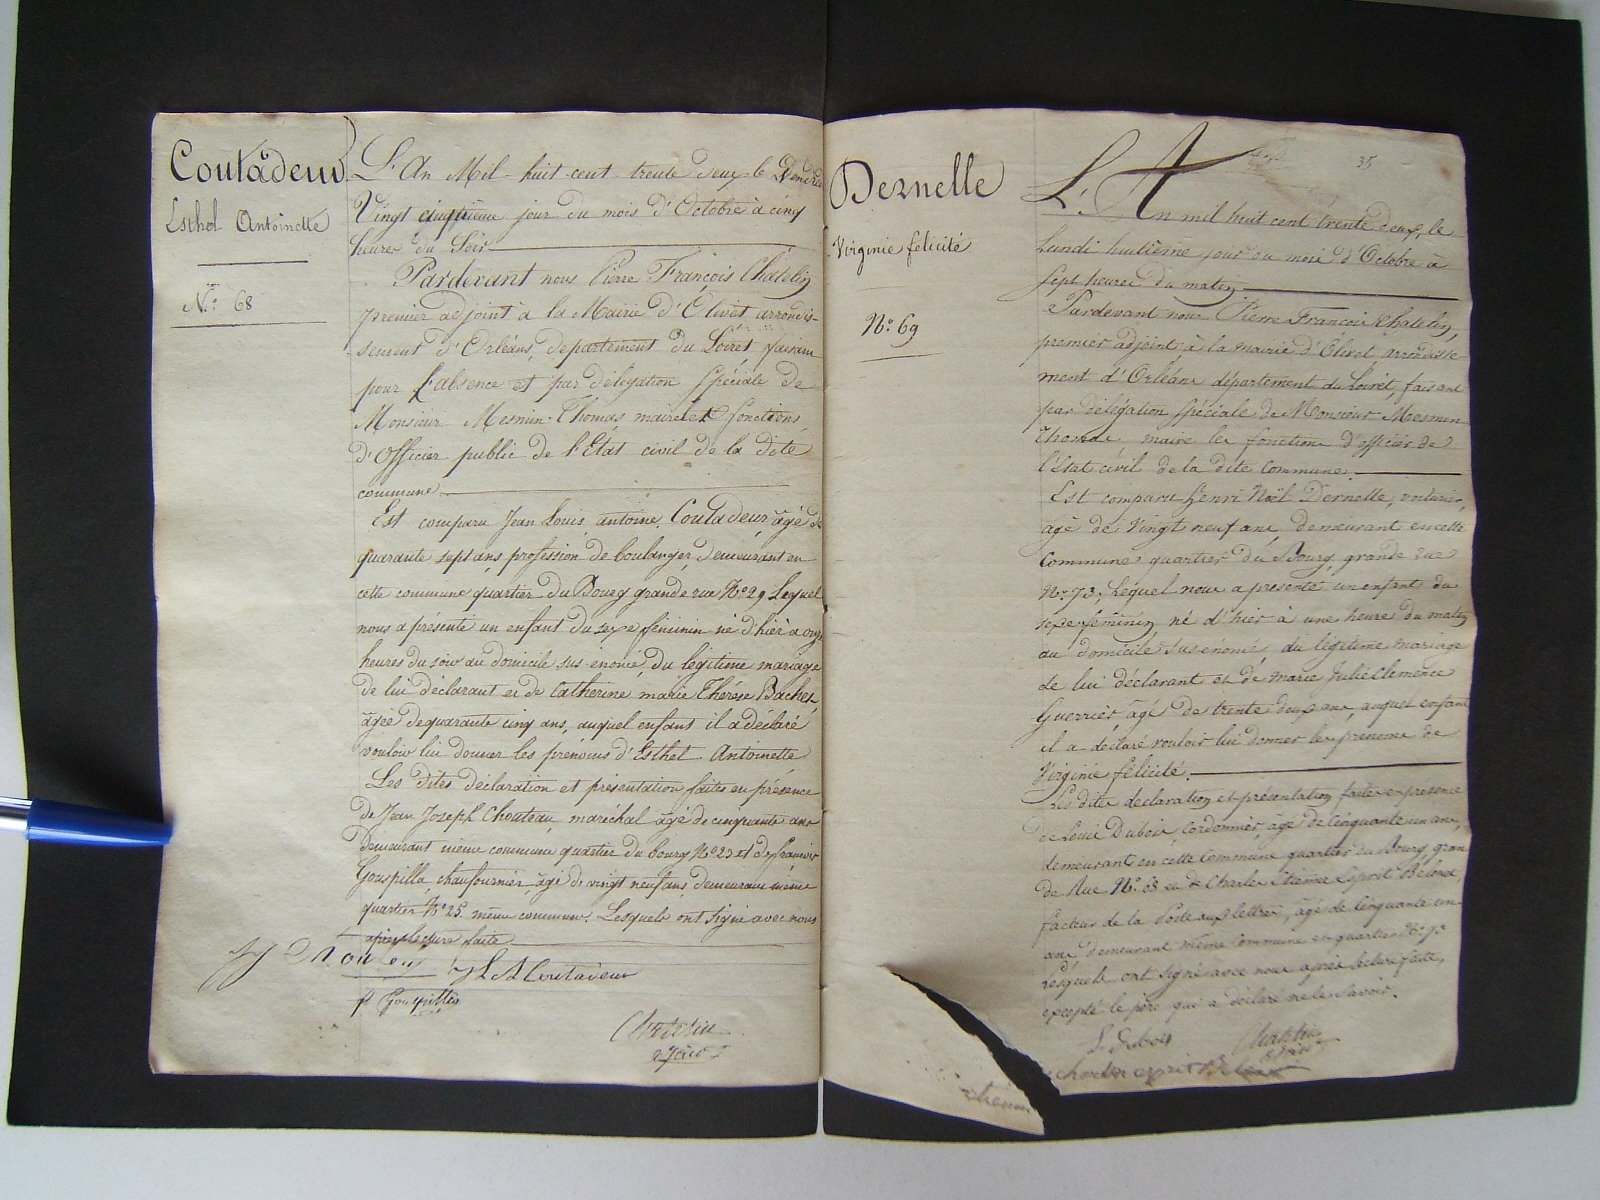 Coutadeur
Esthel Antoinette
N.° 68
L'An Mil huit cent trente deux le Vendredi
Vingt cinquieme jour du mois d'Octobre à cinq
heures du Soir
Pardevant nous Pierre François Chatelin
premier adjoint à la Mairie d'Olivet arrondis-
sement d'Orléans, departement du Loiret faisant
pour l'absence et par délégation Spéciale de
Monsieur Mesnin-Thomas, maire les fonctions
d'Officier public de l'Etat civil de la dite
commune
Est comparu Jean Louis antoine Coutadeur, âgé de
quarante sept ans, profession de boulanger, demeurant en
cette commune quartier du Bourg grande rue N.° 29 Lequel
nous a présenté un enfant du sexe féminin né d'hier à onze
heures du soir au domicile sus énoncé, du légitime mariage
de lui déclarant et de Catherine marie Thérèse Baches,
âgée de quarante cinq ans, auquel enfant il a déclaré
vouloir lui donner les prénoms d'Esthel Antoinette
Les dites déclaration et présentation faites en présence
de Jean Joseph Chouteau, maréchal âgé de cinquante ans
Demeurant même commune quartier du bourg N.° 23 et de françois
Goupilla, chaufournier, âgé de vingt neuf ans, demeurant même
quartier N.° 25. même commune. Lesquels ont signé avec nous
après lecture faite
J L A Coutadeur
f Goupilla
Chatelin
adjoint
35
Dernelle
Virginie félicité
N.° 69
L'An mil huit cent trente deux, le
Lundi huitième jour du mois d'Octobre à
Sept heures du matin
Pardevant nous Pierre François Chatelin,
premier adjoint à la mairie d'Olivet arrondisse
ment d'Orléans département du Loiret, faisant
par délégation spéciale de Monsieur Mesmin
Thomas maire les fonction d'officier de
l'Etat civil de la dite Commune
Est comparu henri Noël Dernelle, voiturier,
agé de Vingt neuf ans, demeurant en cette
Commune quartier du Bourg, grande rue
N.° 73, Lequel nous a presenté un enfant du
sexe féminin né d'hier à une heure du matin
au domicile susénomé, du légitime mariage
de lui déclarant et de marie Julie Clemence
Guerrier âgé de trente deux ans, auquel enfant
il a déclaré vouloir lui donner les prenoms de
Virginie félicité.
Les dites declaration et présentation faites en presence
de Louis Dubois, Cordonnier, âgé de Cinquante un ans,
demeurant en cette Commune quartier du Bourg, gran
de Rue N.° 68 et de Charles Etienne Esprit
facteur de la Poste aux lettres, âgé de Cinquante un
ans, demeurant même Commune et quartier N.° 73
Lesquels ont signé avec nous après lecture faite,
excepté le père qui a déclaré ne le Savoir.
L Dubois
Chatelin
adjoint
Charles esprit